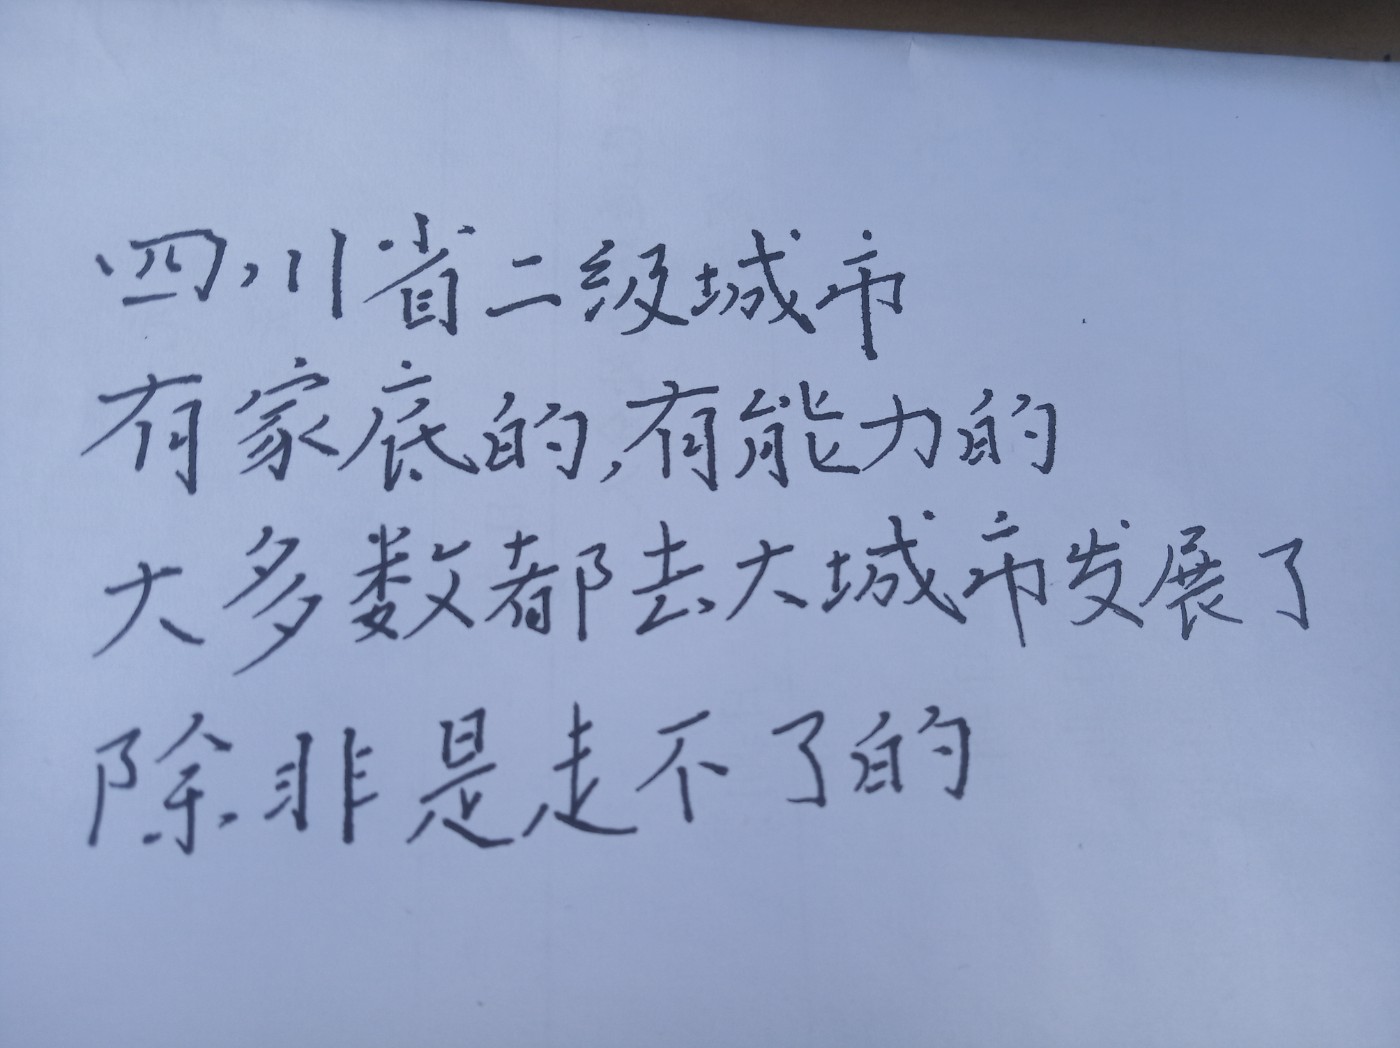 四川省二级城市
有家底的,有能力的
大多数都去大城市发展了
除非是走不了的